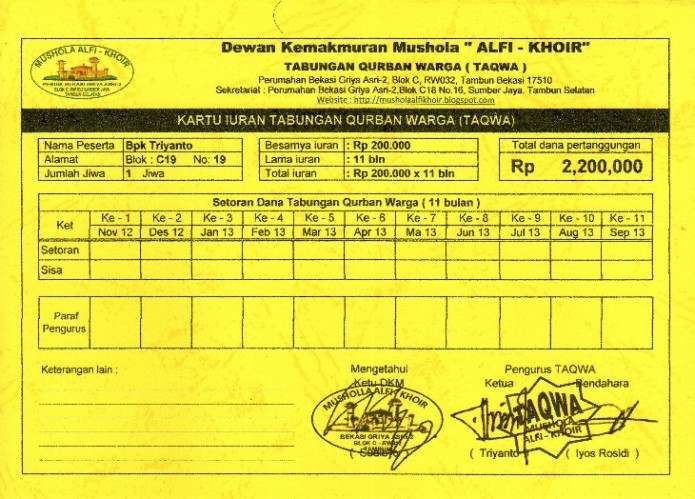 MUSHOLA ALFI - KHOIR
Dewan Kemakmuran Mushola " ALFI - KHOIR"
TABUNGAN QURBAN WARGA ( TAQWA )
Perumahan Bekasi Griya Asri-2, Blok C, RW032, Tambun Bekasi 17510
Sekretariat : Perumahan Bekasi Griya Asri-2,Blok C18 No.16, Sumber Jaya. Tambun Selatan
Website : http://musholaalfikhoir.blogspot.com
KARTU IURAN TABUNGAN QURBAN WARGA (TAQWA)
Nama Peserta Bpk Triyanto
Alamat Blok : C19 No: 19
Jumlah Jiwa 1 Jiwa
Besarnya iuran : Rp 200.000
Lama iuran : 11 bln
Total iuran : Rp 200.000 x 11 bln
Total dana pertanggungan
Rp 2,200,000
Setoran Dana Tabungan Qurban Warga ( 11 bulan )
Ket Ke - 1 Ke - 2 Ke - 3 Ke - 4 Ke - 5 Ke - 6 Ke - 7 Ke - 8 Ke - 9 Ke - 10 Ke - 11
Nov 12 Des 12 Jan 13 Feb 13 Mar 13 Apr 13 Ma 13 Jun 13 Jul 13 Aug 13 Sep 13
Setoran
Sisa
Paraf
Pengurus
Keterangan lain :
Mengetahui
Ketu DKM
Pengurus TAQWA
Ketua Bendahara
MUSHOLLA ALFI - KHOIR
BEKASI GRIYA ASRI-2
TAQWA
MUSHOLA
ALFI - KHOIR
( Triyanto ) ( Iyos Rosidi )